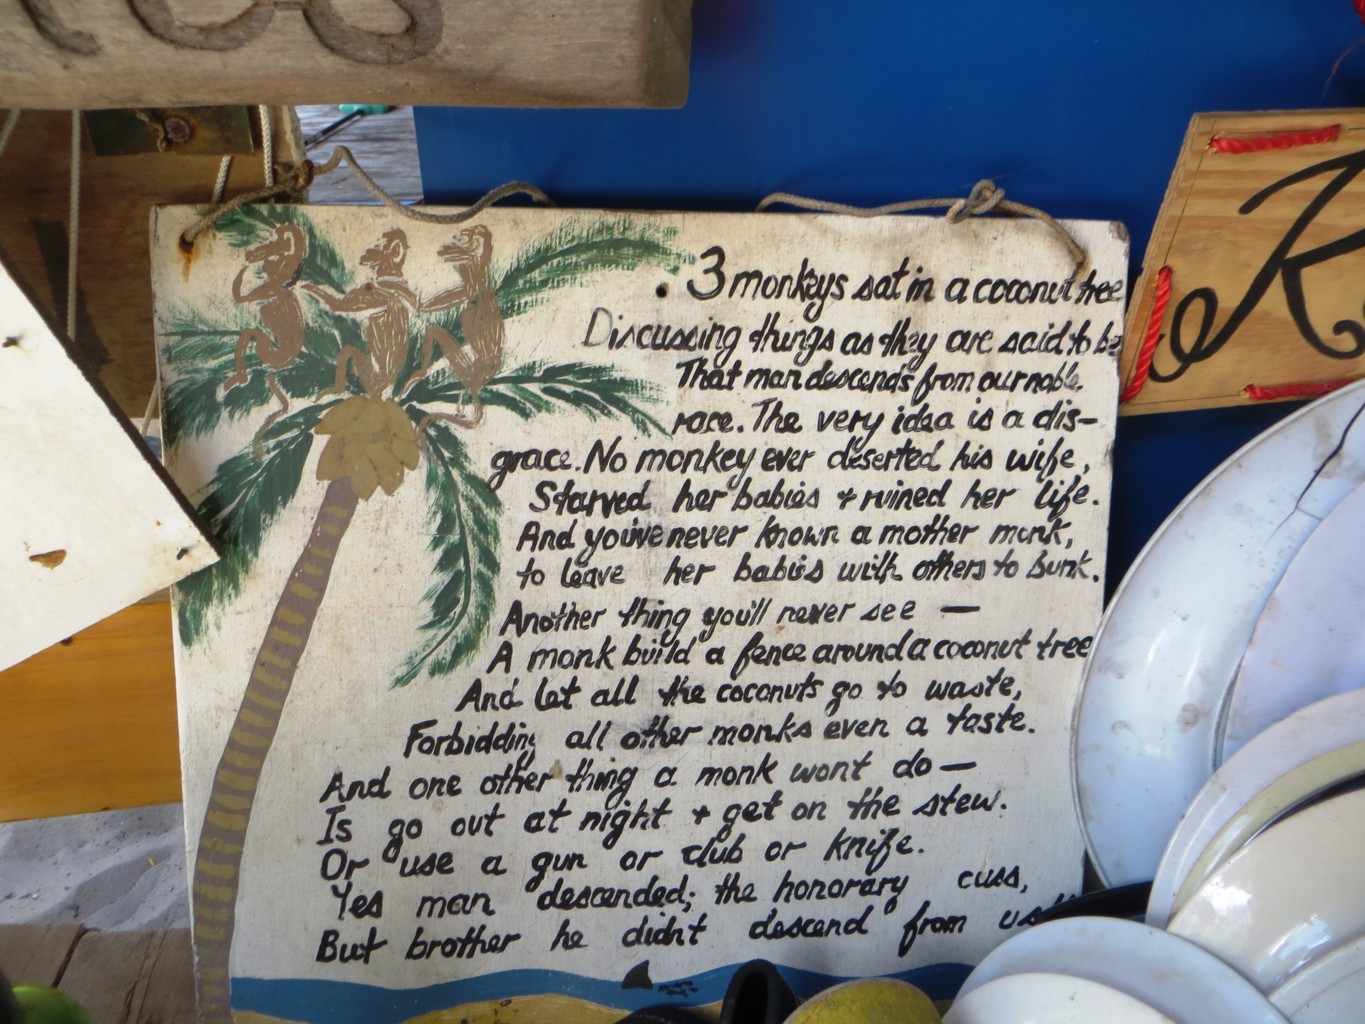 3 monkeys sat in a coconut tree
Discussing things as they are said to be
That man descends from our noble
race. The very idea is a dis-
grace. No monkey ever deserted his wife,
Starved her babies + ruined her life.
And you've never known a mother monk,
to leave her babies with others to bunk.
Another thing you'll never see —
A monk build a fence around a coconut tree
And let all the coconuts go to waste,
Forbidding all other monks even a taste.
And one other thing a monk wont do —
Is go out at night + get on the stew.
Or use a gun or club or knife.
Yes man descended; the honorary cuss,
But brother he didn't descend from us